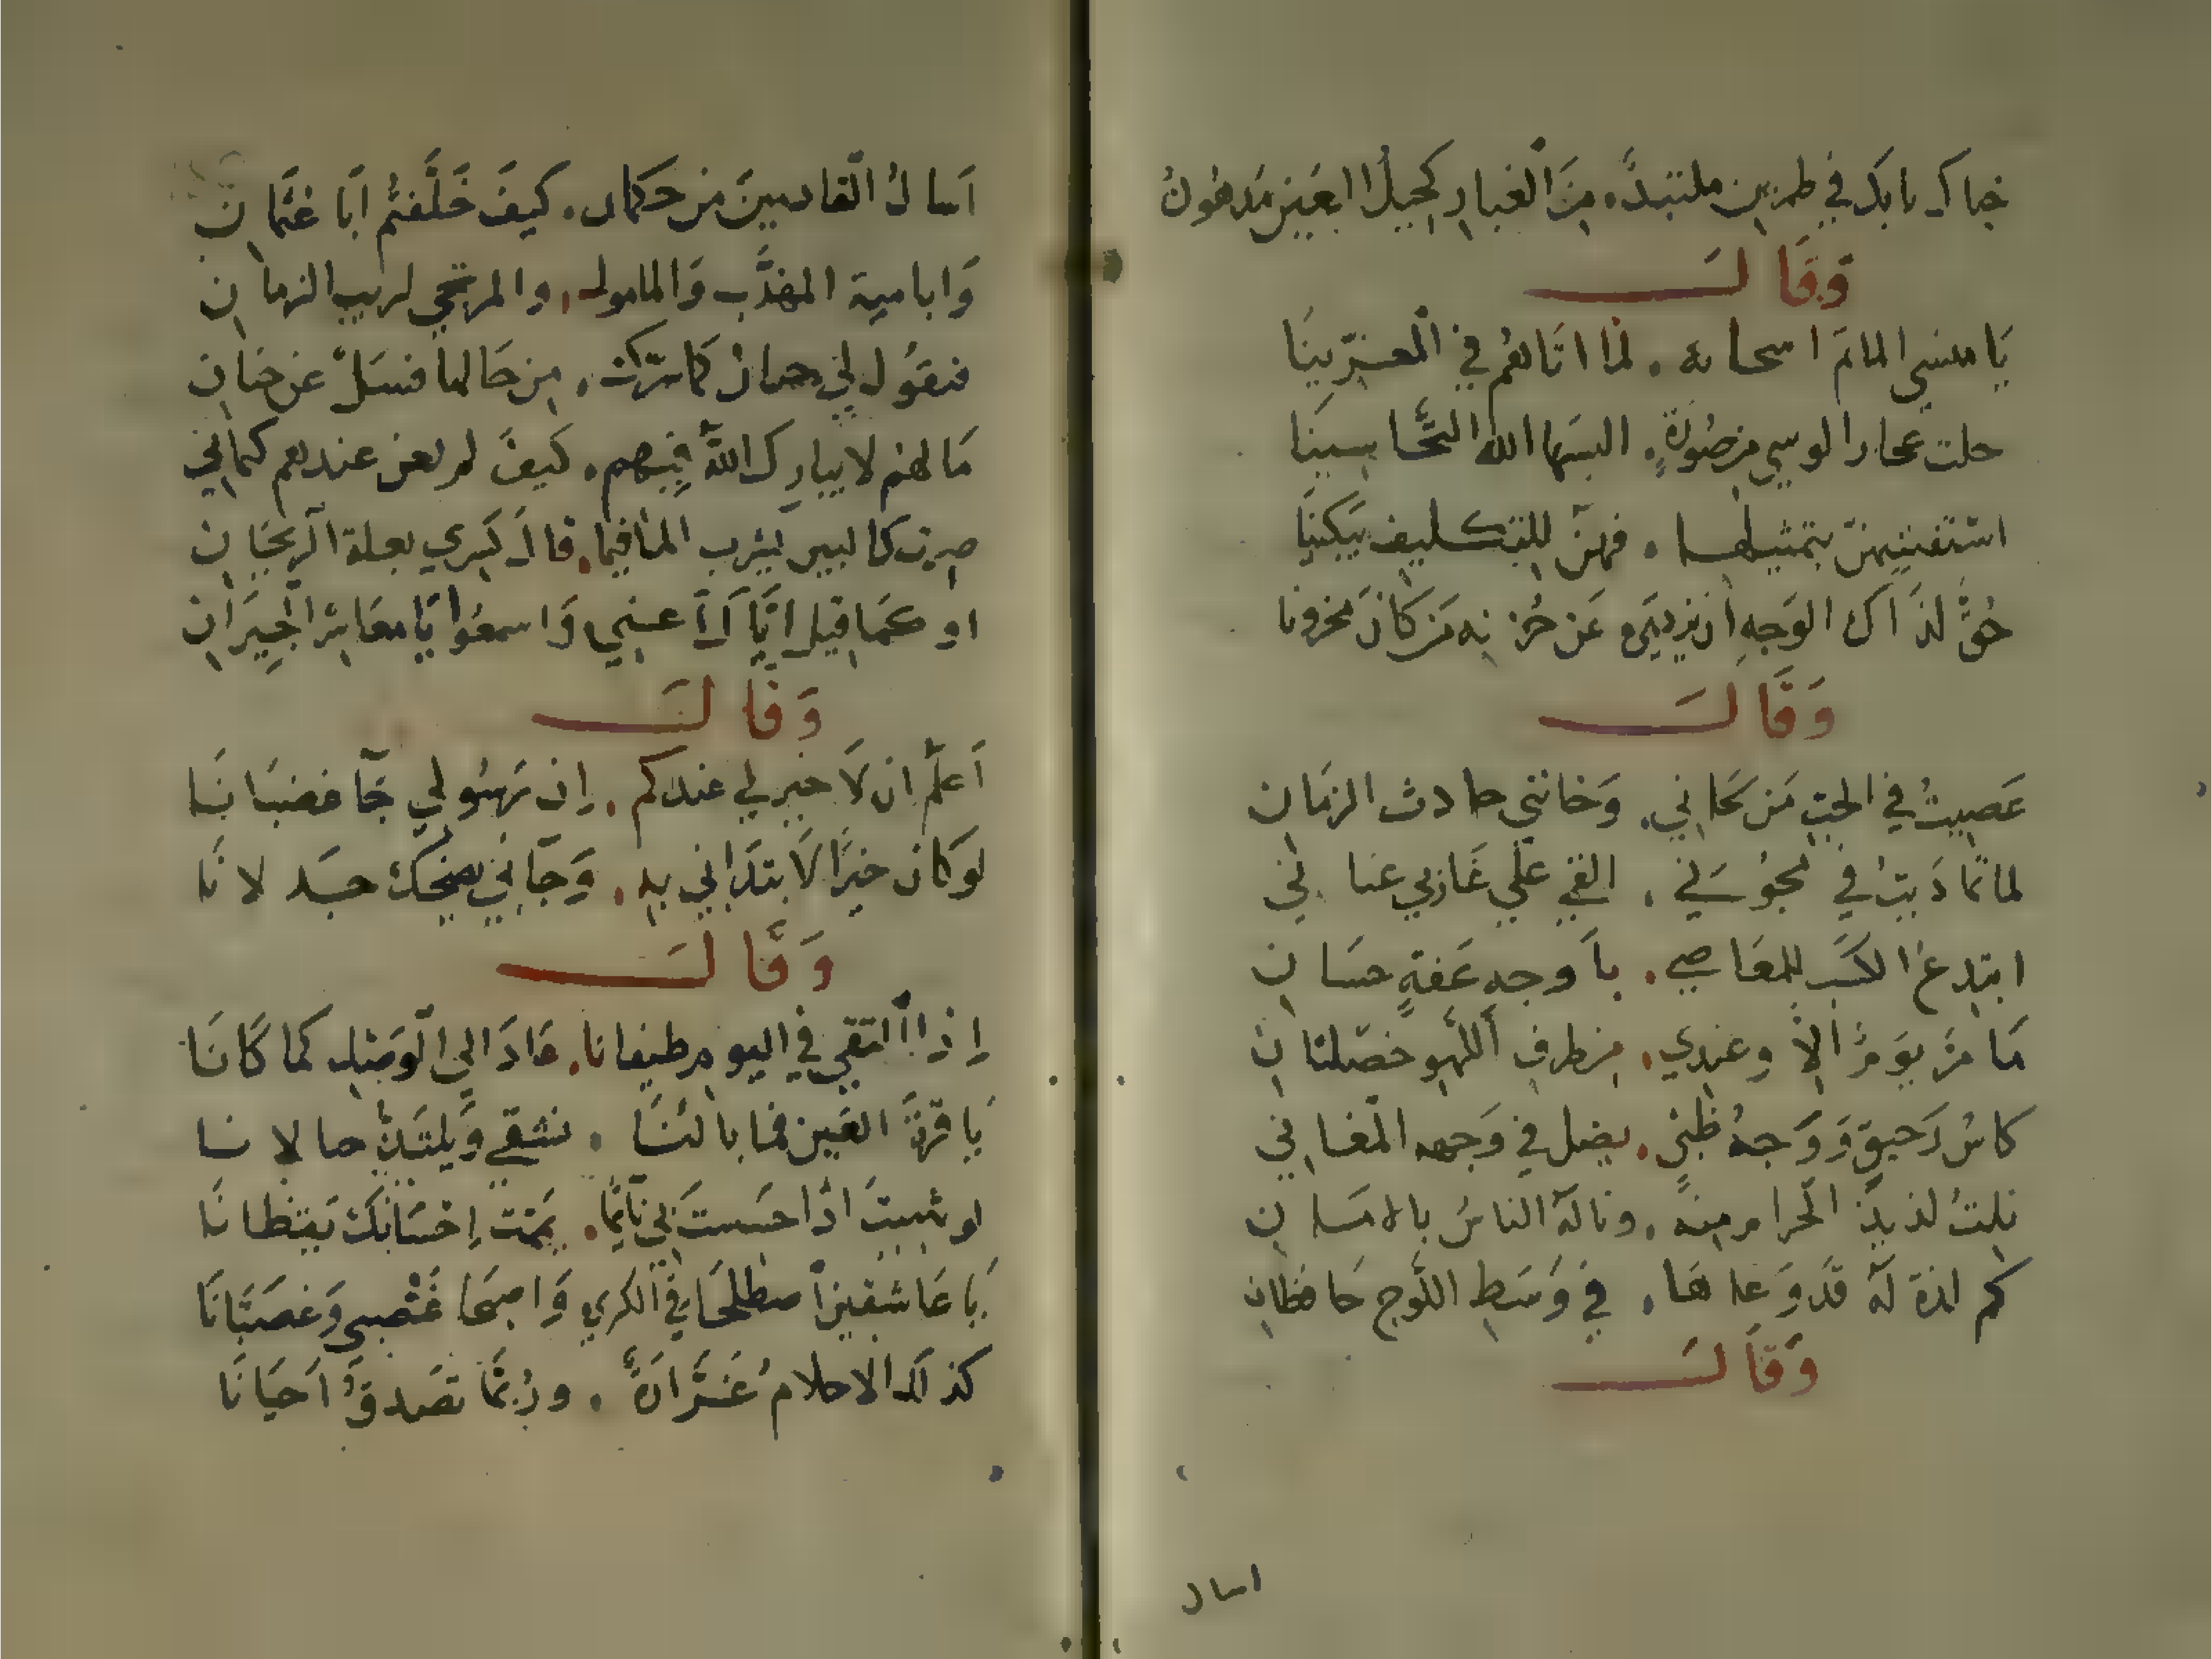 جاك بابك في طمرين ملتبدًا من الغبار كحيل العين مدهون
وَقَالَــــ
يَا منسي الماتم اسحانه . لما اتاهُم في المعزّينَا
حلت عجار الوسي من صُورَةٍ . البسَها الله التَّحَاسِينَا
استفتنتهنّ بتمثيلها . فهنّ للتكليف يَبكينَا
حُقَّ لذَاك الوَجهِ ان يزدهي عَن حُزنِه مَن كَانَ محزونا
وَقَالَــــ
عَصيتُ في الحبّ مَن لحاني . وَخانني حادث الزمَان
لما تمادَيتُ في مُجوُني . القي علي غَاربي عنَاني
ابتدعُ الكَسبَ للمعَاصي . باَوجه عَفّةٍ حسَان
مَا مَرَّ يوَمٌ الاّ وعندي . من طرف اللّهو خصلتان
كاسُ رَحيقٍ وَوَجهُ ظبيٍ . يضل في وَجهه المغَاني
نلتُ لذيذ الحرام منهُ . ونالهُ الناسُ بالامَان
كم لذة لهُ قَد وَعاهَا . في وَسَط اللّوح حَافظان
وَقَالَــــ
اسال
اَسالُ القادمينَ من حَكمان . كيفَ خَلَّفتُم ابَا عُثمان
وَابامية المهذَّب وَالمامول . والمرتجي لريب الزمان
فيقُول لي جنانُ كما سَرّك . من حَالها فسَل عن جنان
مَا لهم لا يبارِك اللهُ فيهم . كيفَ لم يغن عندهم كماني
صرت كالبين يشرب الما فيما . قالَ كسري بعلة الريحَان
او كمَا قيل ايَّاكَ اَعني وَاسمعُوا يَا معَاشر الجيرَان
وَقَالَــــ
اَعلَم ان لاَ خير لي عندكم . إن رَسُولي جَا غضبَانَا
لوَ كان خيرًا لاَبتدَاني به . وَجَاني يضحكُ جَدلانَا
وَقَالَــــ
إذا التقي في اليوم طيفانا . عَادَ الي الوَصل كما كَانَا
يَا قرّةَ العَين فما بالنَا . نشقي وَيلتَذُّ خيالانا
لو شيتَ اذ احسَنتَ بي نَايمًا . تممّت إحسَانك يَقظانَا
يَا عَاشقين اصطلحَا في الكري وَاصبحَا غَضْبي وَغضبَانَا
كذاك الاحلامُ غَرَّارَةٌ . ورُبَّمَا تصَدقُ اَحيَانَا